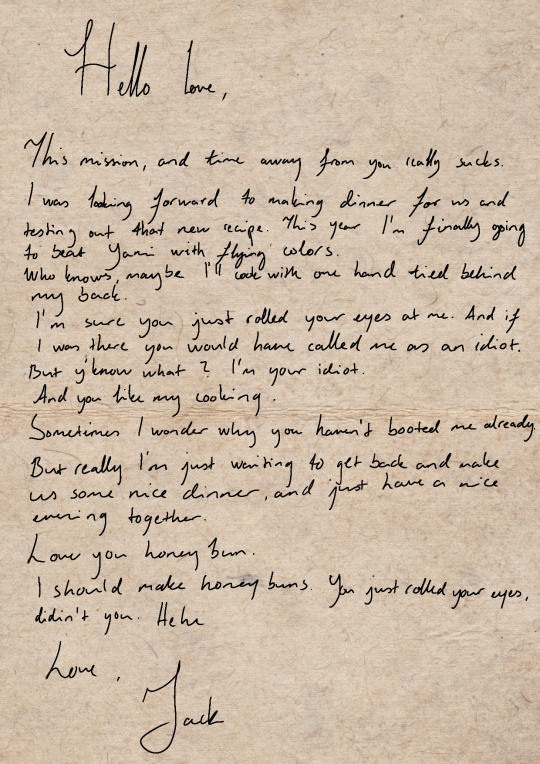 Hello love,
This mission, and time away from you really sucks.
I was looking forward to making dinner for us and
testing out that new recipe. This year I'm finally going
to beat Yami with flying colors.
Who knows, maybe I'll cook with one hand tied behind
my back.
I'm sure you just rolled your eyes at me. And if
I was there you would have called me as an idiot.
But y'know what? I'm your idiot.
And you like my cooking.
Sometimes I wonder why you haven't booted me already.
But really I'm just waiting to get back and make
us some nice dinner, and just have a nice
evening together.
Love you honey bun.
I should make honey buns. You just rolled your eyes,
didin't you. Hehe
Love,
Jack